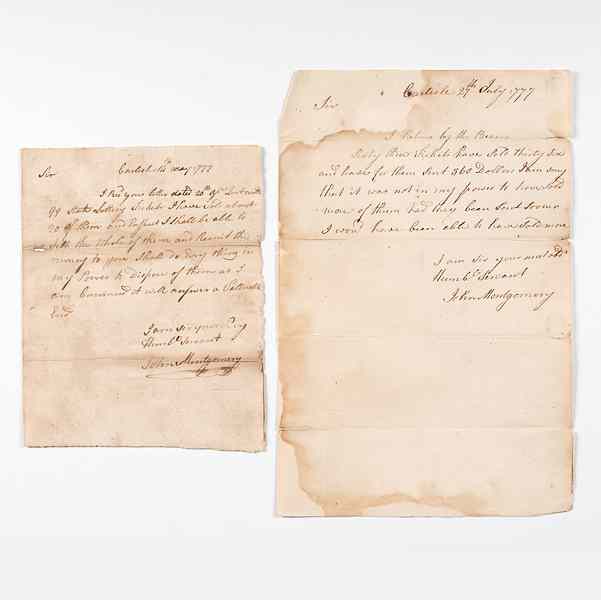 Sir Carlisle 14th may 1777
I Recd your letter dated 20th Apl Last with
99 State Lottery Tickets I have Sold about
20 of them and Expect I shall be able to
Sell the whole of them and Remit the
money to you Shall do Every thing in
my Power to dispose of them as I
am Convinced it will answer a Valuable
End
I am Sir your Very
Humbl Servant
John Montgomery
Carlisle 27th July 1777
Sir
I Return by the Bearer
Sixty three Tickets have Sold thirty Six
and have for them Sent 360 Dollars I am Sorry
that it was not in my power to have Sold
more of them had they been Sent Sooner
I woud have been able to have Sold more
I am Sir your most obdt
Humbl Servant
John Montgomery